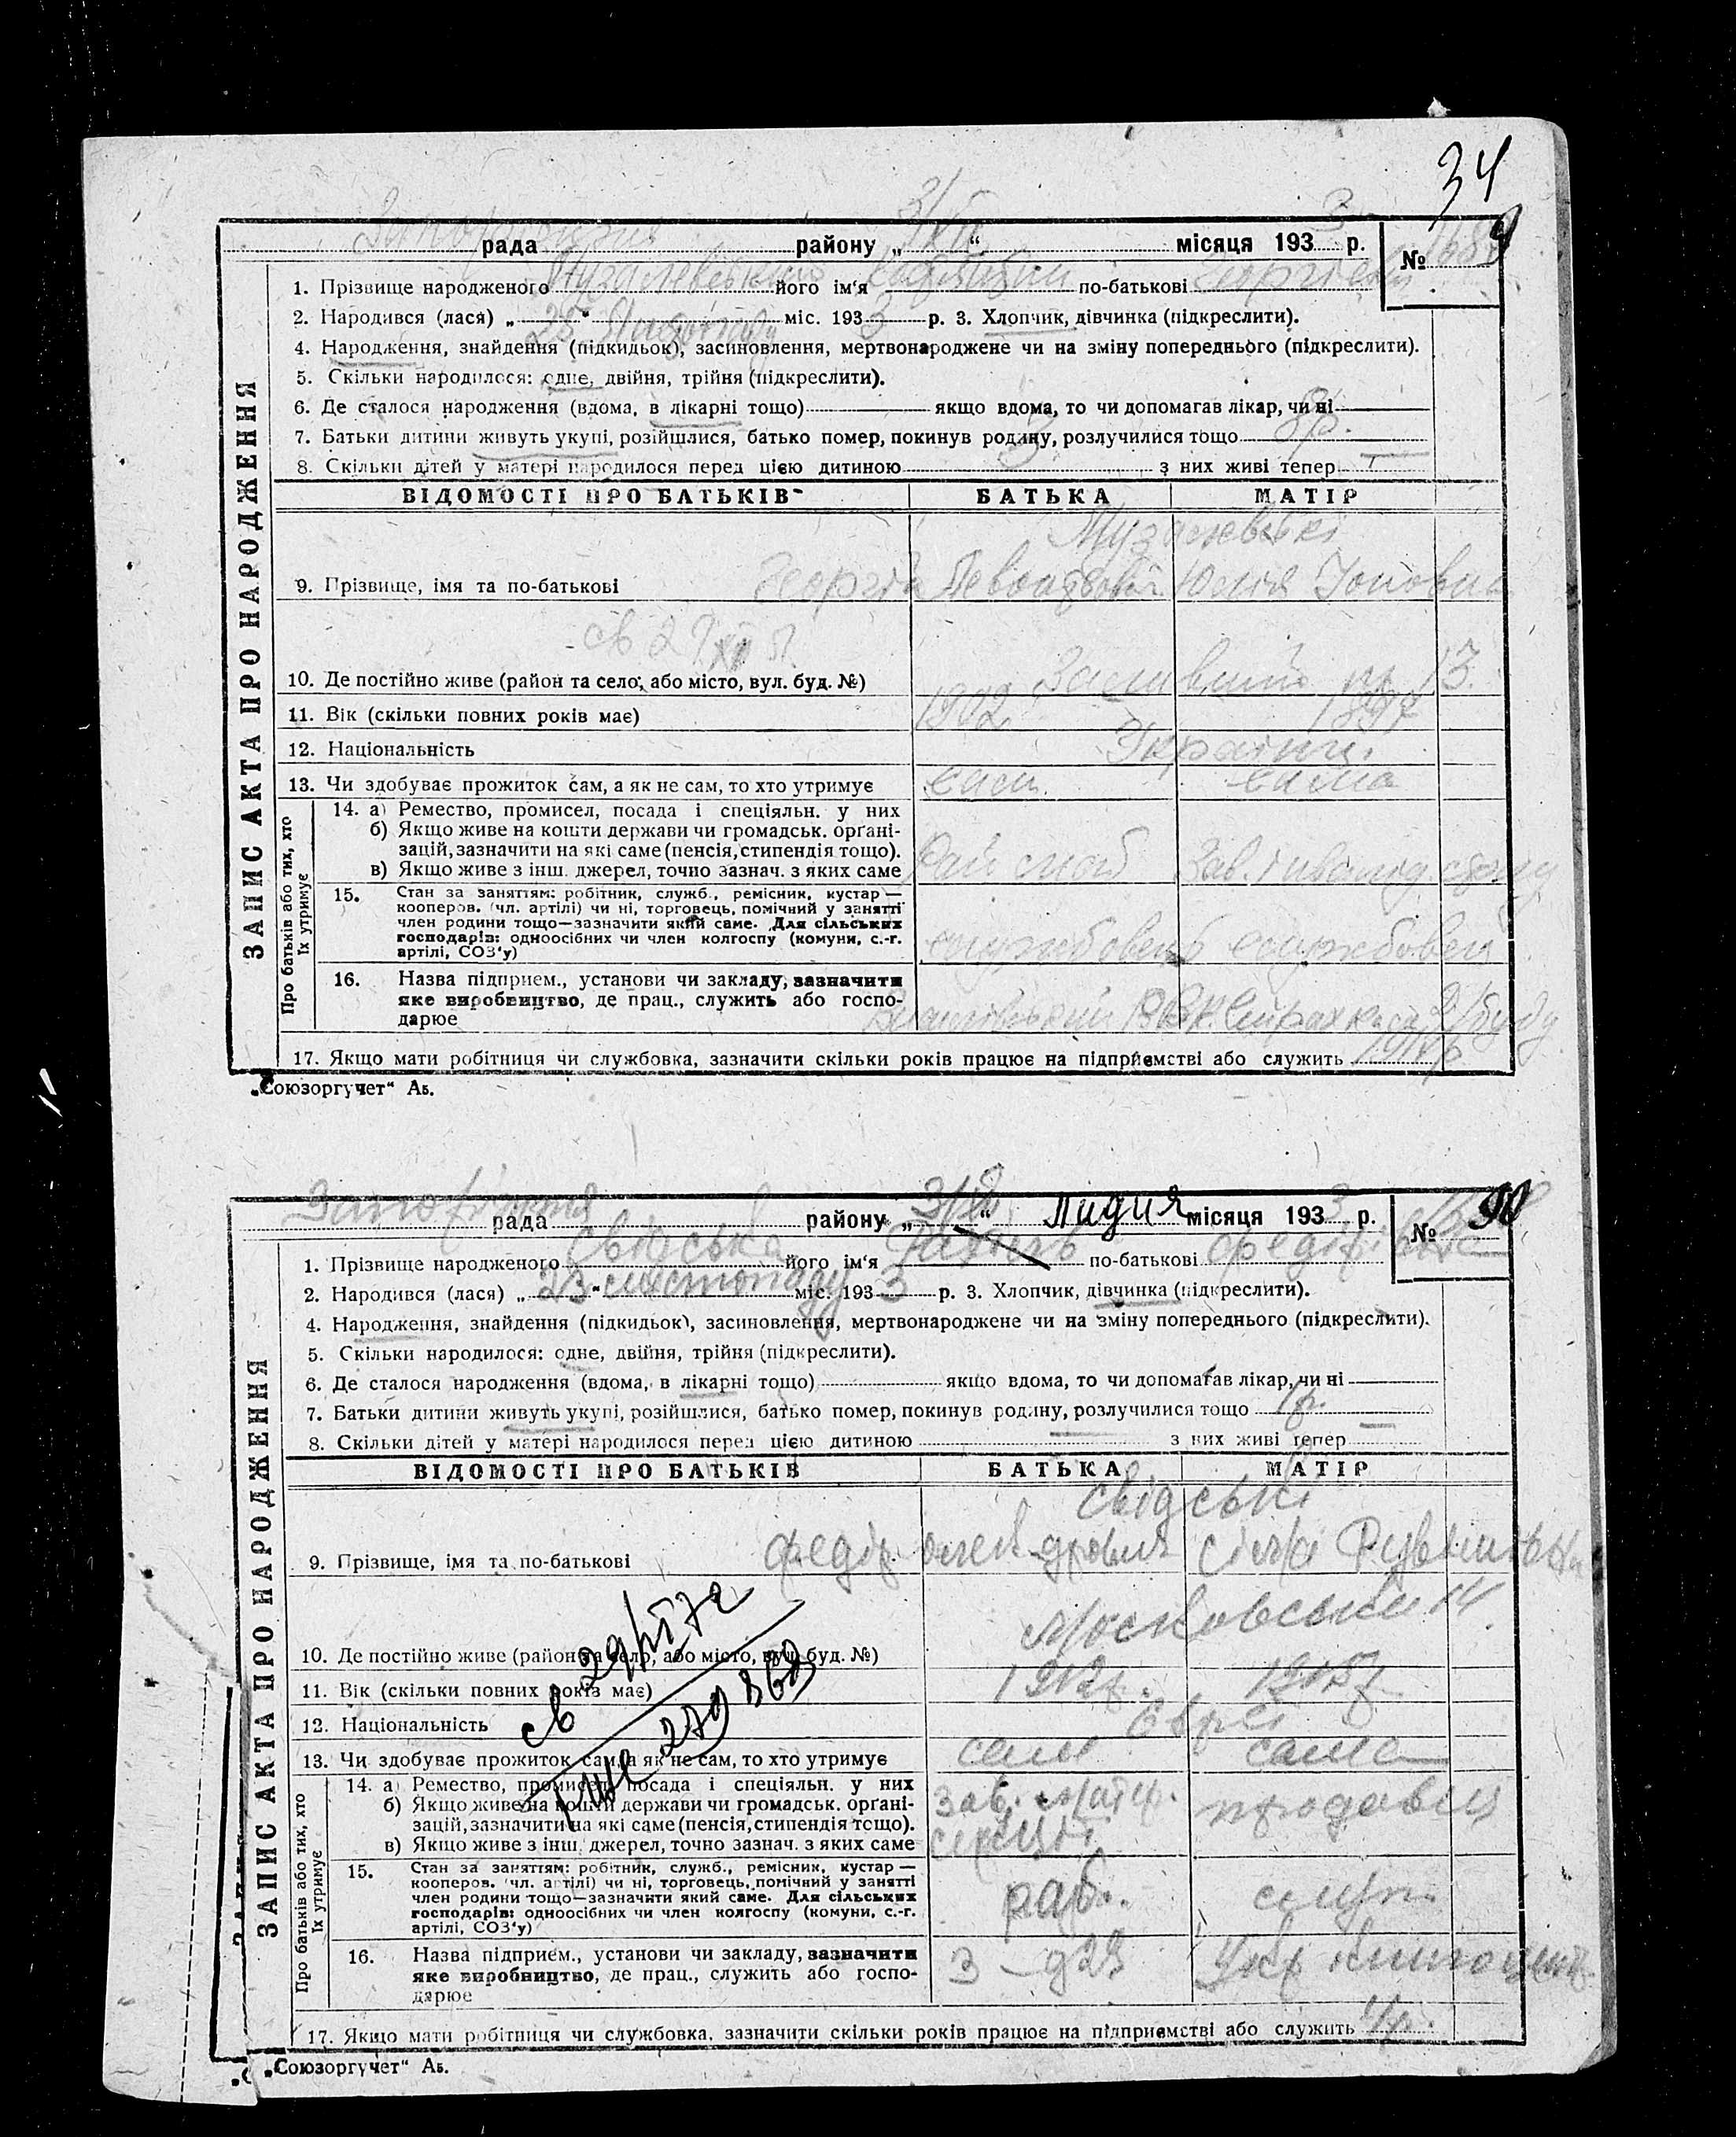 34
рада району „ “ місяця 1933 р. №
1. Прізвище народженого його ім'я по-батькові
2. Народився (лася) „25“ Листопаду міс. 1933 р. 3. Хлопчик, дівчинка (підкреслити).
4. Народження, знайдення (підкидьок), засиновлення, мертвонароджене чи на зміну попереднього (підкреслити).
5. Скільки народилося: одне, двійня, трійня (підкреслити).
6. Де сталося народження (вдома, в лікарні тощо) якщо вдома, то чи допомагав лікар, чи ні
7. Батьки дитини живуть укупі, розійшлися, батько помер, покинув родину, розлучилися тощо 8 р.
8. Скільки дітей у матері народилося перед цією дитиною 3 з них живі тепер 1
ВІДОМОСТІ ПРО БАТЬКІВ БАТЬКА МАТІР
9. Прізвище, імя та по-батькові Георгій Юлія
10. Де постійно живе (район та село, або місто, вул. буд. №) 13
11. Вік (скільки повних років має) 1902 1897
12. Національність Українці
13. Чи здобуває прожиток сам, а як не сам, то хто утримує сам сама
14. а) Ремество, промисел, посада і спеціяльн. у них
б) Якщо живе на кошти держави чи громадськ. орґані-
зацій, зазначити на які саме (пенсія, стипендія тощо).
в) Якщо живе з інш. джерел, точно зазнач. з яких саме
15. Стан за заняттям: робітник, служб., ремісник, кустар —
кооперов. (чл. артілі) чи ні, торговець, помічний у занятті
член родини тощо—зазначити який саме. Для сільських
господарів: одноосібних чи член колгоспу (комуни, с.-г.
артілі, СОЗ'у) службовець службовец
16. Назва підприєм., установи чи закладу, зазначити
яке виробництво, де прац., служить або госпо-
дарює
17. Якщо мати робітниця чи службовка, зазначити скільки років працює на підприємстві або служить
ЗАПИС АКТА ПРО НАРОДЖЕННЯ
Про батьків або тих, хто
їх утримує
„Союзоргучет“ Ав.
Запоріжжя рада району „ “ Лидия місяця 1933 р. № 90
1. Прізвище народженого Свідська його ім'я по-батькові
2. Народився (лася) „23“ листопаду міс. 1933 р. 3. Хлопчик, дівчинка (підкреслити).
4. Народження, знайдення (підкидьок), засиновлення, мертвонароджене чи на зміну попереднього (підкреслити).
5. Скільки народилося: одне, двійня, трійня (підкреслити).
6. Де сталося народження (вдома, в лікарні тощо) якщо вдома, то чи допомагав лікар, чи ні
7. Батьки дитини живуть укупі, розійшлися, батько помер, покинув родину, розлучилися тощо 1 р.
8. Скільки дітей у матері народилося перед цією дитиною — з них живі тепер —
ВІДОМОСТІ ПРО БАТЬКІВ БАТЬКА МАТІР
Свідські
9. Прізвище, імя та по-батькові Федір
10. Де постійно живе (район та село, або місто, вул. буд. №) Московська 14
11. Вік (скільки повних років має) 1912 р. 1915 р.
12. Національність Євреї
13. Чи здобуває прожиток сам, а як не сам, то хто утримує сам сама
14. а) Ремество, промисел, посада і спеціяльн. у них
б) Якщо живе на кошти держави чи громадськ. орґані-
зацій, зазначити на які саме (пенсія, стипендія тощо).
в) Якщо живе з інш. джерел, точно зазнач. з яких саме продавец
15. Стан за заняттям: робітник, служб., ремісник, кустар —
кооперов. (чл. артілі) чи ні, торговець, помічний у занятті
член родини тощо—зазначити який саме. Для сільських
господарів: одноосібних чи член колгоспу (комуни, с.-г.
артілі, СОЗ'у) раб. служ.
16. Назва підприєм., установи чи закладу, зазначити
яке виробництво, де прац., служить або госпо-
дарює
17. Якщо мати робітниця чи службовка, зазначити скільки років працює на підприємстві або служить
ЗАПИС АКТА ПРО НАРОДЖЕННЯ
Про батьків або тих, хто
їх утримує
„Союзоргучет“ Ав.